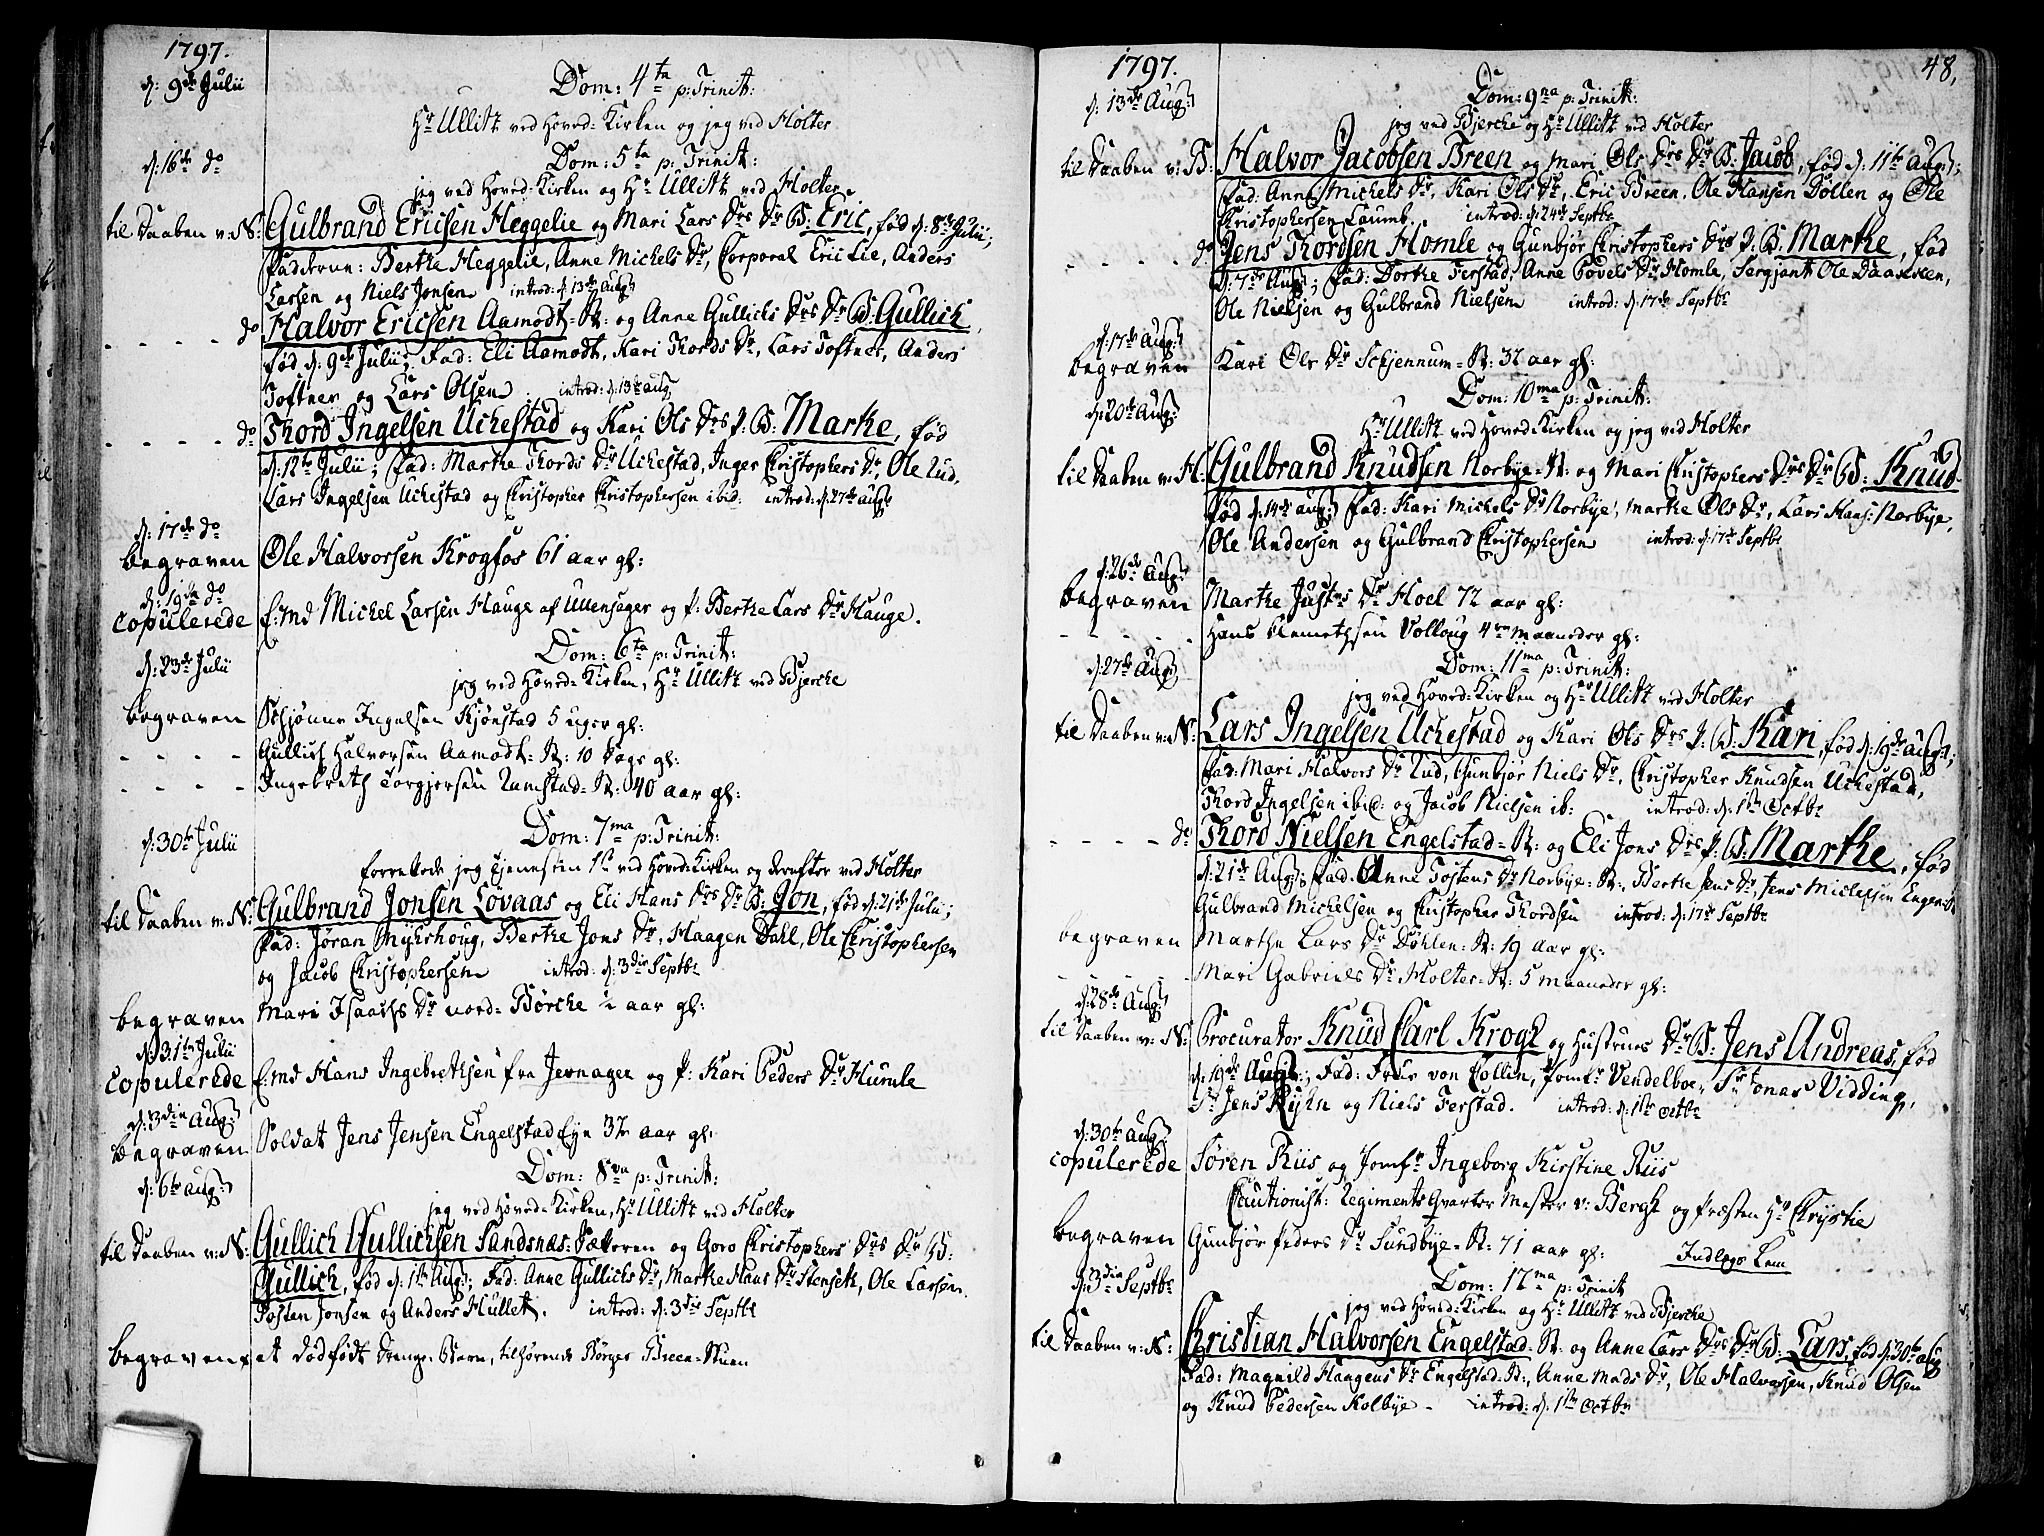 1797.
d: 9de Julii
Dom: 4ta p: Trinit:
Hr Ullitz ved Hoved-Kirken og jeg ved Holter
d: 16de do
Dom: 5ta p: Trinit:
jeg ved Hoved-Kirken og Hr Ullitz ved Holter
til Daaben v: N: Gulbrand Ericsen Heggelie og Mari Lars Drs Dr B: Eric, fød d: 8de Julii;
Fadderne: Berthe Heggelie, Anne Michels Dr, Corporal Eric Lie, Anders
Larsen og Niels Jonsen introd: d: 13de Aug:
- - - - do Halvor Ericsen Aamodt-N: og Anne Gullichs Drs Dr B: Gullich,
fød d: 9de Julii; Fad: Eli Aamodt, Kari Thords Dr, Lars Toftner, Anders
Toftner og Lars Olsen introd: d: 13de aug
- - - - do Thord Ingelsen Uckestad og Kari Ols Drs P: B: Marthe, fød
d: 12te Julii; Fad: Marthe Thords Dr Uckestad, Inger Christophers Dr, Ole Lud,
Lars Ingelsen Uckestad og Christopher Christophersen ibid: introd: d: 27de aug:
d: 17de do
begraven Ole Halvorsen Krogfos 61 aar gl:
d: 19de do
copulerede E:md Michel Larsen Hauge af Ullensager og P: Berthe Lars Dr Hauge.
Dom: 6ta p: Trinit:
d: 23de Julii
jeg ved Hoved-Kirken, Hr Ullitz ved Bjercke
begraven Schjønne Ingelsen Kjønstad 5 uger gl:
- - - - Gullich Halvorsen Aamodt-N: 10 Dage gl:
- - - - Ingebreth Torgjersen Ramstad-N: 40 aar gl:
Dom: 7ma p: Trinit:
d: 30te Julii
forrettede jeg Tjenesten 1st ved Hoved-Kirken og derefter ved Holter
til Daaben v: N: Gulbrand Jonsen Lovaas og Eli Hans Drs Dr B: Jon, fød d: 21de Julii;
Fad: Jøran Myhrhoug, Berthe Jons Dr, Haagen Dahl, Ole Christophersen
og Jacob Christophersen introd: d: 3die Septbr
begraven Mari Isaachs Dr nord-Børcke ½ aar gl:
d: 31te Julii
copulerede E:md Hans Ingebrethsen fra Jevnager og P: Kari Peders Dr Humle
d: 3die Aug:
begraven Soldat Jens Jensen Engelstad Eye 37 aar gl:
Dom: 8va p: Trinit:
d: 6te Aug:
jeg ved Hoved-Kirken, Hr Ullitz ved Holter
til Daaben v: N: Gullich Gullichsen Sandsnæs-Sætteren og Goro Christophers Drs Dr B:
Gullich, fød d: 1ste Aug; Fad: Anne Gullichs Dr, Marthe Hans Dr Stenseth, Ole Larsen
Tosten Jonsen og Anders Hullet. introd: d: 3die Septbr
begraven et dødfødt Drenge-Barn, tilhørende Børger Breen-Stuen
1797.
48,
d: 13de Aug:
Dom: 9na p: Trinit:
jeg ved Bjercke og Hr Ullitz ved Holter
til Daaben v: B: Halvor Jacobsen Breen og Mari Ols Drs Dr B: Jacob, fød d: 11te Aug;
Fad: Anne Michels Dr, Kari Ols Dr, Eric Breen, Ole Hansen Døllen og Ole
Christophersen Laumb. introd: d: 24de Septbr
- - - - do Jens Thordsen Homle og Gunbjør Christophers Drs P: B: Marthe, fød
d: 7de Aug; Fad: Dorthe Ferstad, Anne Povels Dr Homle, Sergjant Ole Daaslien,
Ole Nielsen og Gulbrand Nielsen introd: d: 17de Septbr
d: 17de Aug:
begraven Kari Ols Dr Schjennum-N: 37 aar gl:
Dom: 10ma p: Trinit:
d: 20de Aug:
Hr Ullitz ved Hoved-Kirken og jeg ved Holter
til Daaben v: H: Gulbrand Knudsen Norbye-N: og Mari Christophers Drs Dr B: Knud
fød d: 14de aug: Fad: Kari Michels Dr Norbye, Marthe Ols Dr, Lars Hans: Norbye,
Ole Andersen og Gulbrand Christophersen introd: d: 17de Septbr
d: 26de Aug:
begraven Marthe Justs Dr Hoel 72 aar gl:
- - - - Hans Clemethsen Volloug 4re maaneder gl:
Dom: 11ma p: Trinit:
d: 27de Aug:
jeg ved Hoved-Kirken og Hr Ullitz ved Holter
til Daaben v: N: Lars Ingelsen Uckestad og Kari Ols Drs P: B: Kari, fød d: 19de aug;
Fad: Mari Halvors Dr Lud, Gunbjør Niels Dr, Christopher Knudsen Uckestad,
Thord Ingelsen ibid: og Jacob Nielsen ib: introd: d: 1ste Octbr
- - - - do Thord Nielsen Engelstad-N: og Eli Jons Drs P: B: Marthe, fød
d: 21de Aug; Fad: Anne Tostens Dr Norbye-N:, Berthe Jens Dr, Jens Michelsen
Gulbrand Michelsen og Christopher Thordsen introd: d: 17de Septbr
begraven Marthe Lars Dr Døhlen-N: 19 aar gl:
- - - - Mari Gabriels Dr Holter-N: 5 maaneder gl:
d: 28de Aug:
til Daaben v: N: Procurator Knud Carl Krogh og Hustrues Dr B: Jens Andreas, fød
d: 19de Aug:, Fad: Frue von Collin, Jomfr Vendelboe, Sr Jonas Vidding,
Sr Jens Ryhn og Niels Ferstad. introd: d: 1ste Octbr
d: 30te Aug:
copulerede Søren Riis og Jomfr Ingeborg Kirstine Riis
Cautionist: Regiments Qvarter Mester v: Bergh og Præsten Hr Chrystie
begraven Gunbjør Peders Dr Sundbye-N: 71 aar gl: Indlags Lem
Dom: 12ma p: Trinit
d: 3die Septbr
jeg ved Hoved-Kirken og Hr Ullitz ved Bjercke
til Daaben v: N: Christian Halvorsen Engelstad-N: og Anne Lars Drs Dr B: Lars, fød d: 30te Aug
Fad: Magnild Haagens Dr Engelstad-N:, Anne Mads Dr, Ole Halvorsen, Knud Olsen
og Knud Pedersen Kolbye - introd: d: 1ste Octbr